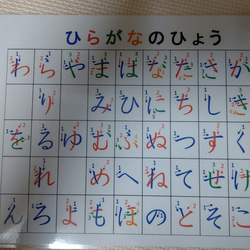 ひらがなのひょう
かきくけこ
さしすせそ
たちつてと
なにぬねの
はひふへほ
まみむめも
やゆよ
らりるれろ
わをん